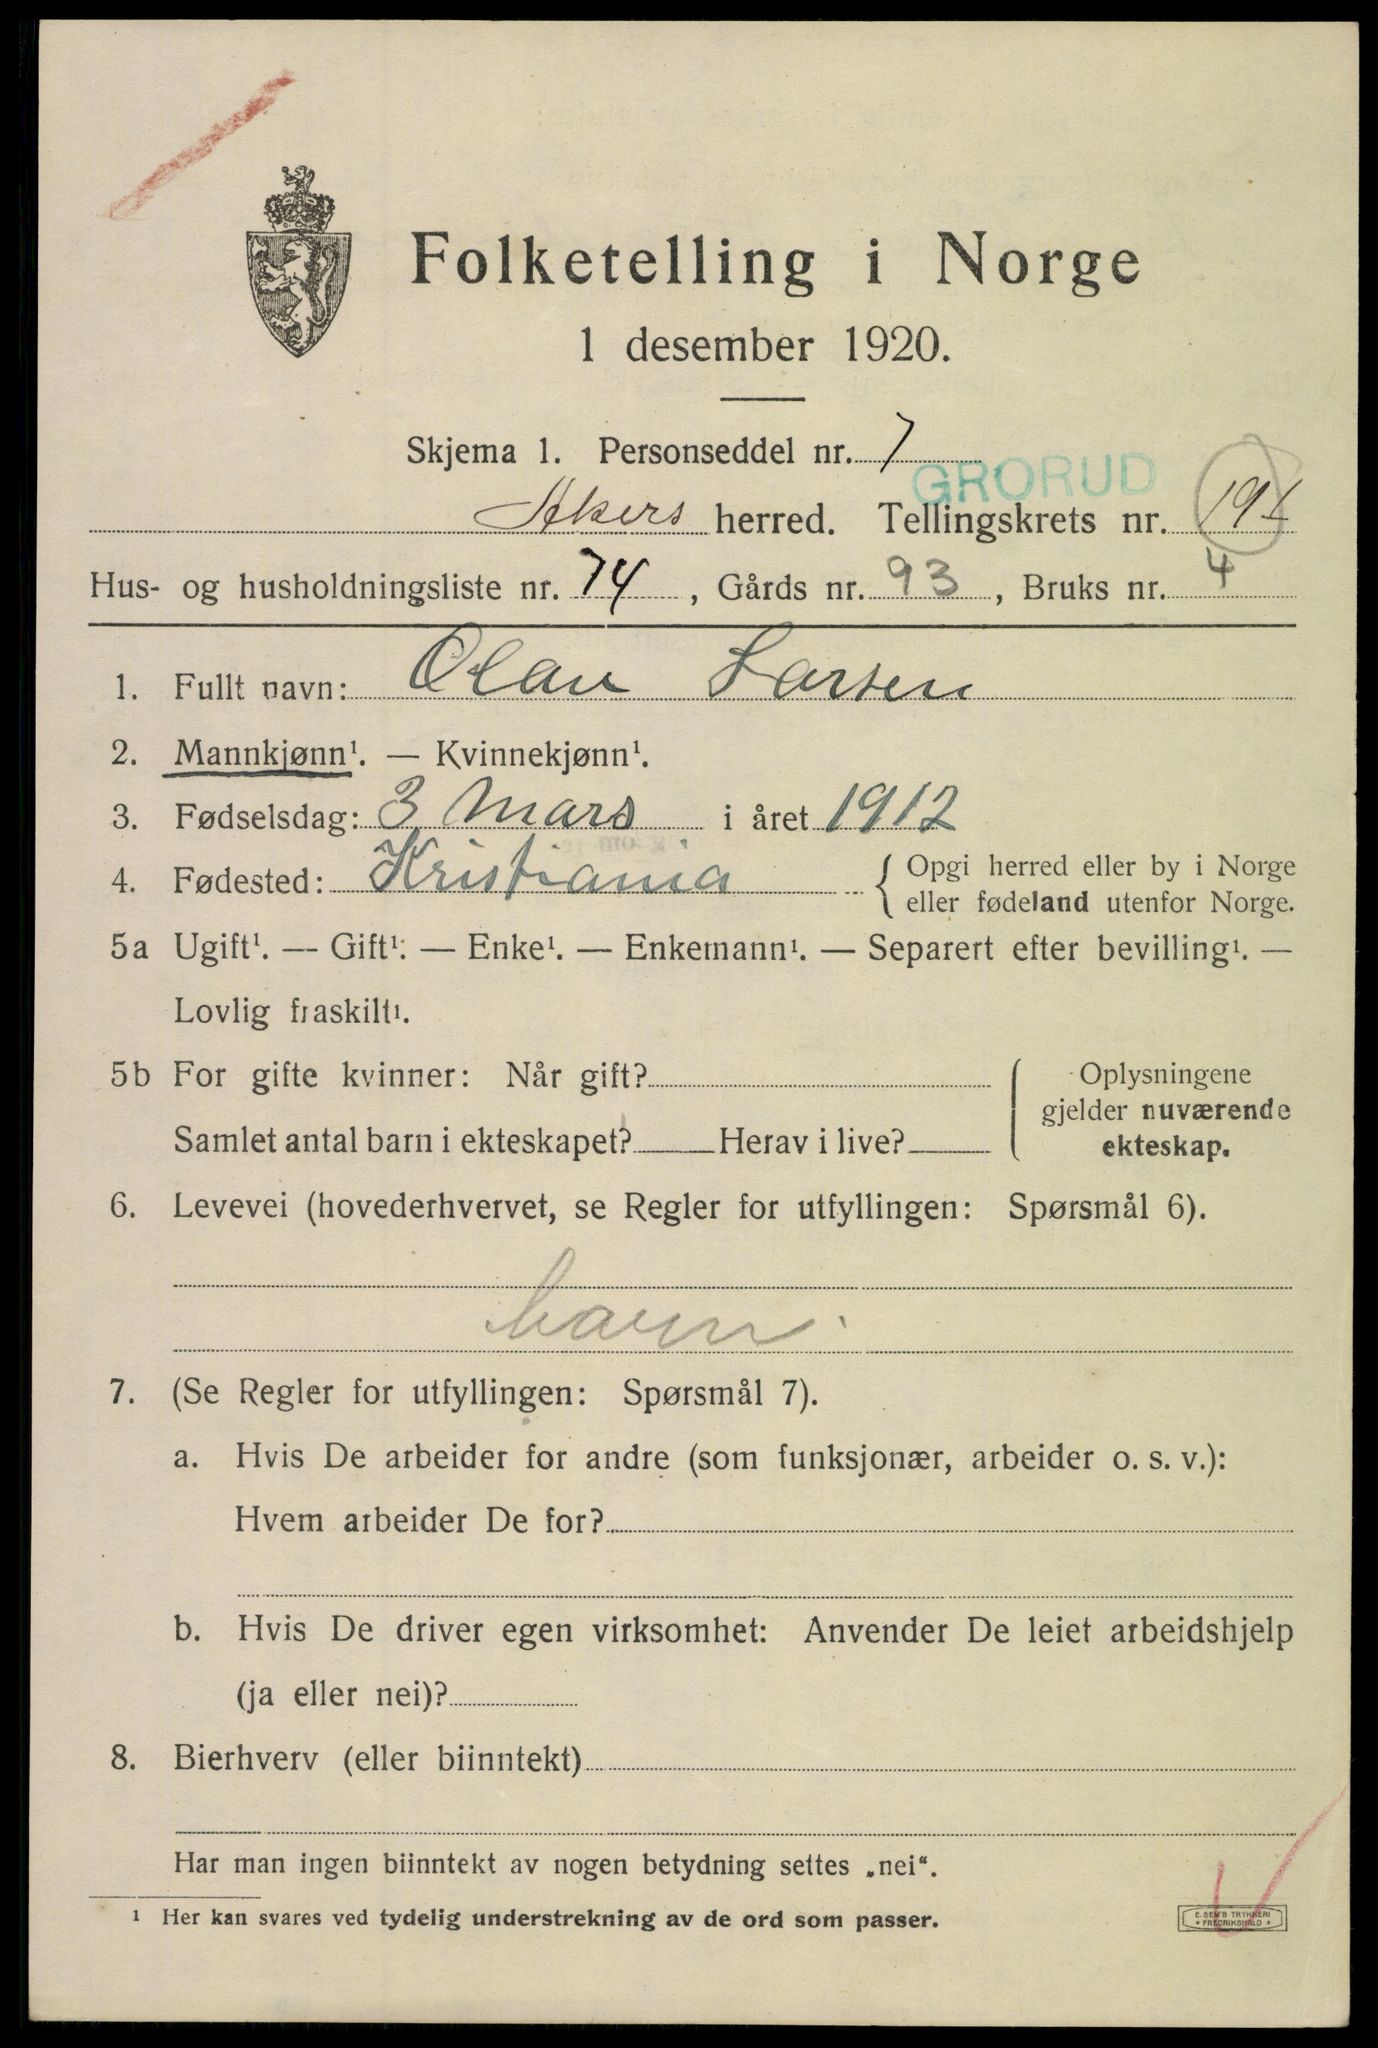 Folketelling i Norge
1 desember 1920.
Skjema 1. Personseddel nr. 7
GRORUD
Akers herred. Tellingskrets nr. 191
Hus- og husholdningsliste nr. 74, Gårds nr. 93, Bruks nr. 4
1. Fullt navn: Olav Larsen
2. Mannkjønn¹. — Kvinnekjønn¹.
3. Fødselsdag: 3 Mars i året 1912
4. Fødested: Kristiania { Opgi herred eller by i Norge
eller fødeland utenfor Norge.
5a Ugift¹. — Gift¹. — Enke¹. — Enkemann¹. — Separert efter bevilling¹. —
Lovlig fraskilt¹.
5b For gifte kvinner: Når gift? { Oplysningene
gjelder nuværende
Samlet antal barn i ekteskapet? Herav i live? ekteskap.
6. Levevei (hovederhvervet, se Regler for utfyllingen: Spørsmål 6).
barn.
7. (Se Regler for utfyllingen: Spørsmål 7).
a. Hvis De arbeider for andre (som funksjonær, arbeider o. s. v.):
Hvem arbeider De for?
b. Hvis De driver egen virksomhet: Anvender De leiet arbeidshjelp
(ja eller nei)?
8. Bierhverv (eller biinntekt)
Har man ingen biinntekt av nogen betydning settes „nei“.
¹ Her kan svares ved tydelig understrekning av de ord som passer.
E. SEM'S TRYKKERI
* FREDRIKSHALD *